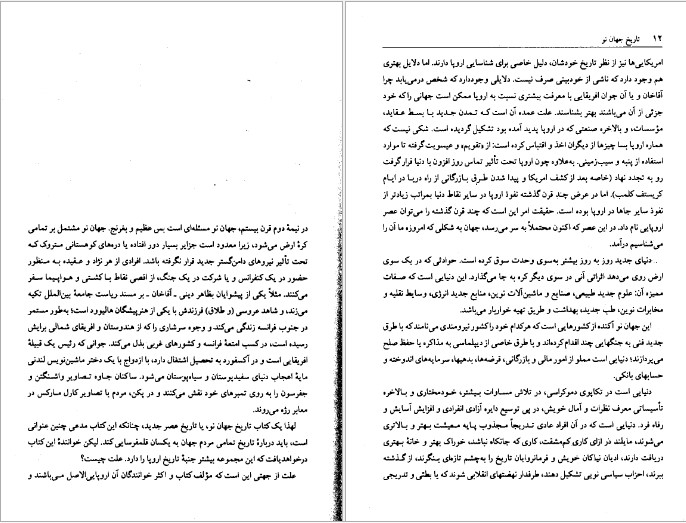 در نیمهٔ دوم قرن بیستم، جهان نو مسئله‌ای است بس عظیم و بغرنج. جهان نو مشتمل بر تمامی
کرهٔ ارض می‌شود، زیرا معدود است جزایر بسیار دور افتاده یا دره‌های کوهستانی متروک که
تحت تأثیر نیروهای دامن‌گستر جدید قرار نگرفته باشد. افرادی از هر نژاد و عقیده به منظور
حضور در یک کنفرانس و یا شرکت در یک جنگ، از اقصی نقاط با کشتی و هواپیما سفر
می‌کنند. مثلاً یکی از پیشوایان بظاهر دینی ـ آقاخان ـ بر مسند ریاست جامعهٔ بین‌الملل تکیه
می‌زند، و شاهد عروسی (و طلاق) فرزندش با یکی از هنرپیشگان هالیوود است؛ به‌طور مستمر
در جنوب فرانسه زندگی می‌کند و وجوه سرشاری را که از هندوستان و افریقای شمالی برایش
رسیده است، در کسب امتعهٔ فرانسه و کشورهای غربی بذل می‌کند. جوانی که رئیس یک قبیلهٔ
افریقایی است و در آکسفورد به تحصیل اشتغال دارد، با ازدواج با یک دختر ماشین‌نویس لندنی
مایهٔ اعجاب دنیای سفیدپوستان و سیاه‌پوستان می‌شود. ساکنان جاوه تصاویر واشنگتن و
جفرسون را به روی تمبرهای خود نقش می‌کنند و در پکن، مردم با تصاویر کارل مارکس در
معابر رژه می‌روند.
لهذا یک کتاب تاریخ جهان نو، یا تاریخ عصر جدید، چنانکه این کتاب مدعی چنین عنوانی
است، باید دربارهٔ تاریخ تمامی مردم جهان به یکسان قلمفرسایی کند. لیکن خوانندهٔ این کتاب
درخواهدیافت که این مجموعه بیشتر جنبهٔ تاریخ اروپا را دارد. علت چیست؟
علت از جهتی این است که مؤلف کتاب و اکثر خوانندگان آن اروپایی‌الاصل می‌باشند و
۱۲ تاریخ جهان نو
امریکایی‌ها نیز از نظر تاریخ خودشان، دلیل خاصی برای شناسایی اروپا دارند. اما دلایل بهتری
هم وجود دارد که ناشی از خودبینی صرف نیست. دلایلی وجوددارد که شخص درمی‌یابد چرا
آقاخان و یا آن جوان افریقایی با معرفت بیشتری نسبت به اروپا ممکن است جهانی را که خود
جزئی از آن می‌باشند بهتر بشناسند. علت عمده آن است کـه تـمدن جدید بـا بسط عـقاید،
مؤسسات، و بالاخره صنعتی که در اروپا پدید آمده بود تشکیل گردیده است. شکی نیست که
همـاره اروپا بـسا چیزها از دیگران اخذ و اقتباس کرده است: از «تقویم» و عیسویت گرفته تا موارد
استفاده از پنبه و سیب‌زمینی. به‌علاوه چون اروپا تحت تأثیر تماس روز افزون با دنیا قرارگرفت
رو به تجدد نهاد (خاصه بعد از کشف امریکا و پیدا شدن طـرق بـازرگانی از راه دریـا در ایـام
کریستف کلمب). اما در عرض چند قرن گذشته نفوذ اروپا در سایر نقاط دنیا بمراتب زیادتر از
نفوذ سایر جاها در اروپا بوده است. حقیقت امر این است که چند قرن گذشته را می‌توان عصر
اروپایی نام داد. در این عصر که اکنون محتملاً به سر می‌رسد، جهان به شکلی که امروزه ما آن را
می‌شناسیم درآمد.
دنیای جدید روز به روز بیشتر به‌سوی وحدت سوق کرده است. حوادثی که در یک سوی
ارض روی می‌دهد اثراتی آنی در سوی دیگر کره به جا می‌گذارد. این دنیایی است که صفات
ممیزه آن: علوم جدید طبیعی، صنایع و ماشین‌آلات نوین، منابع جدید انرژی، وسایط نقلیه و
مخابرات نوین، طب جدید، بهداشت و طریق تهیه خواربار می‌باشد.
این جهان نو آکنده از کشورهایی است که هرکدام خود را کشور نیرومندی می‌نامند که با طرق
جدید فنی به جنگهایی چند اقدام کرده‌اند و یا طرق خاصی از دیپلماسی به مذاکره یا حفظ صلح
می‌پردازند؛ دنیایی است مملو از امور مالی و بازرگانی، قرضه‌ها، بدهیها، سرمایه‌های اندوخته و
حسابهای بانکی.
دنیایی است در تکاپوی دموکراسی، در تلاش مساوات بیشتر، خودمختاری و بـالاخره
تأسیساتی معرف نظرات و آمال خویش، در پی توسیع دایره آزادی انفرادی و افزایش آسایش و
رفاه فرد. دنیایی است که در آن افراد عادی تـدریجاً مـجذوب پـایه مـعیشت بهتر و بـالاتری
می‌شوند، مایلند در ازای کاری کم‌مشقت، کاری که جانکاه نباشد، خوراک بهتر و خانهٔ بهتری
دریافت دارند، ادیان نیاکان خویش و فرمانروایان تاریخ را به‌چشم تازه‌ای بـنگرند، از گـذشته
ببرند، احزاب سیاسی نوینی تشکیل دهند، طرفدار نهضتهای انقلابی شوند که یا بطئی و تدریجی